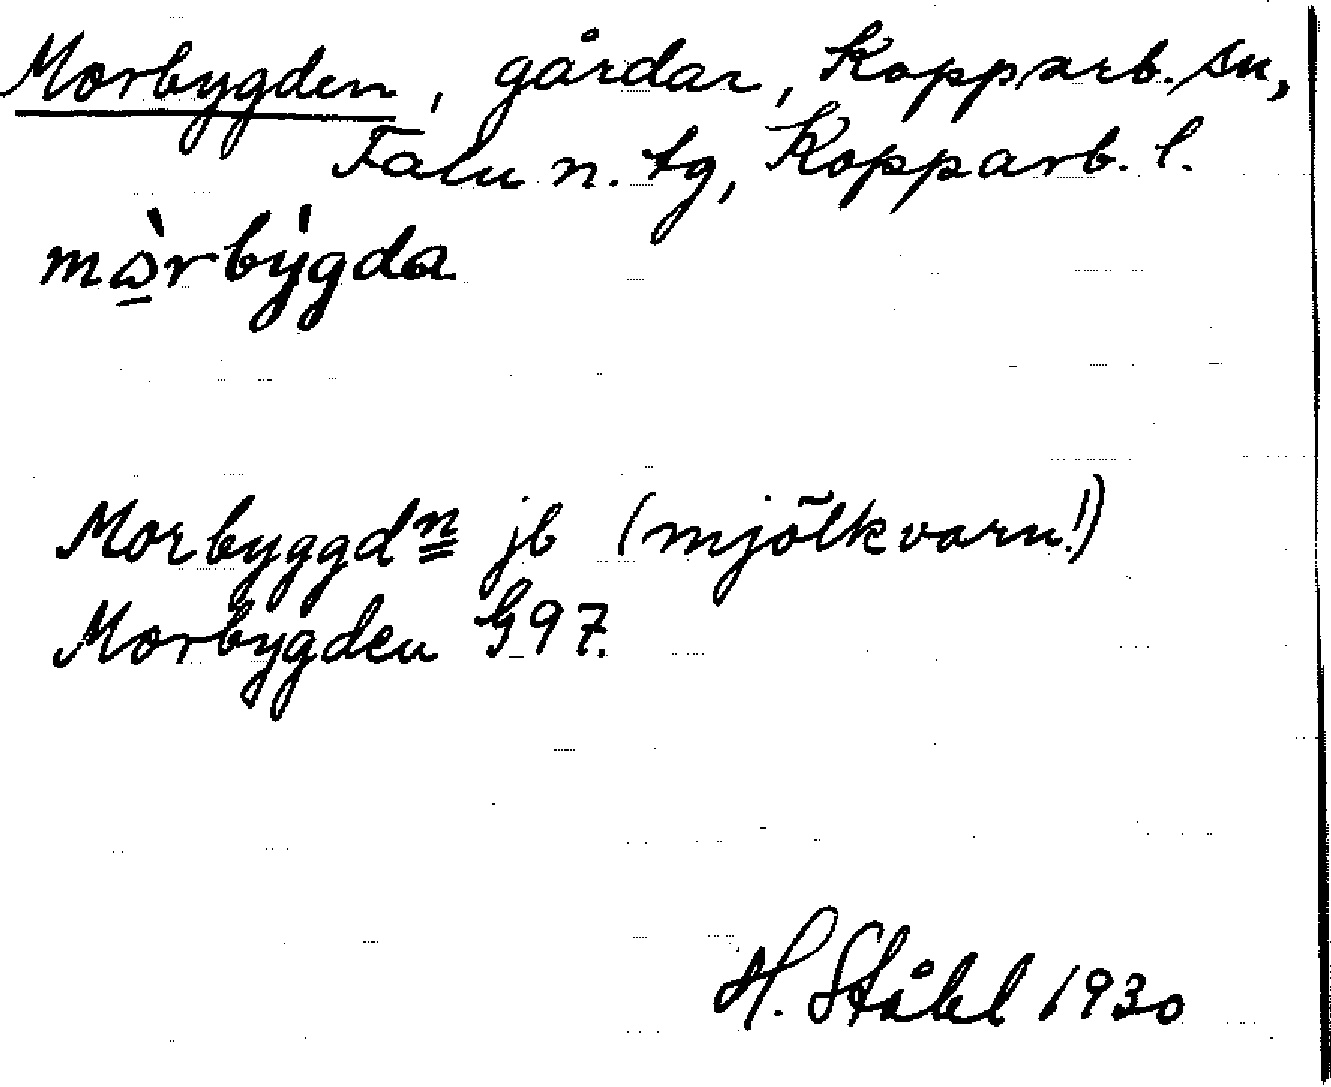 Morbygden, gårdar, Kopparb. sn,
Falu n. tg, Kopparb. l.
mɷ̠̀rbỳgda
Morbyggdn jb (mjölkvarn!)
Morbygden G97.
H. Ståhl 1930